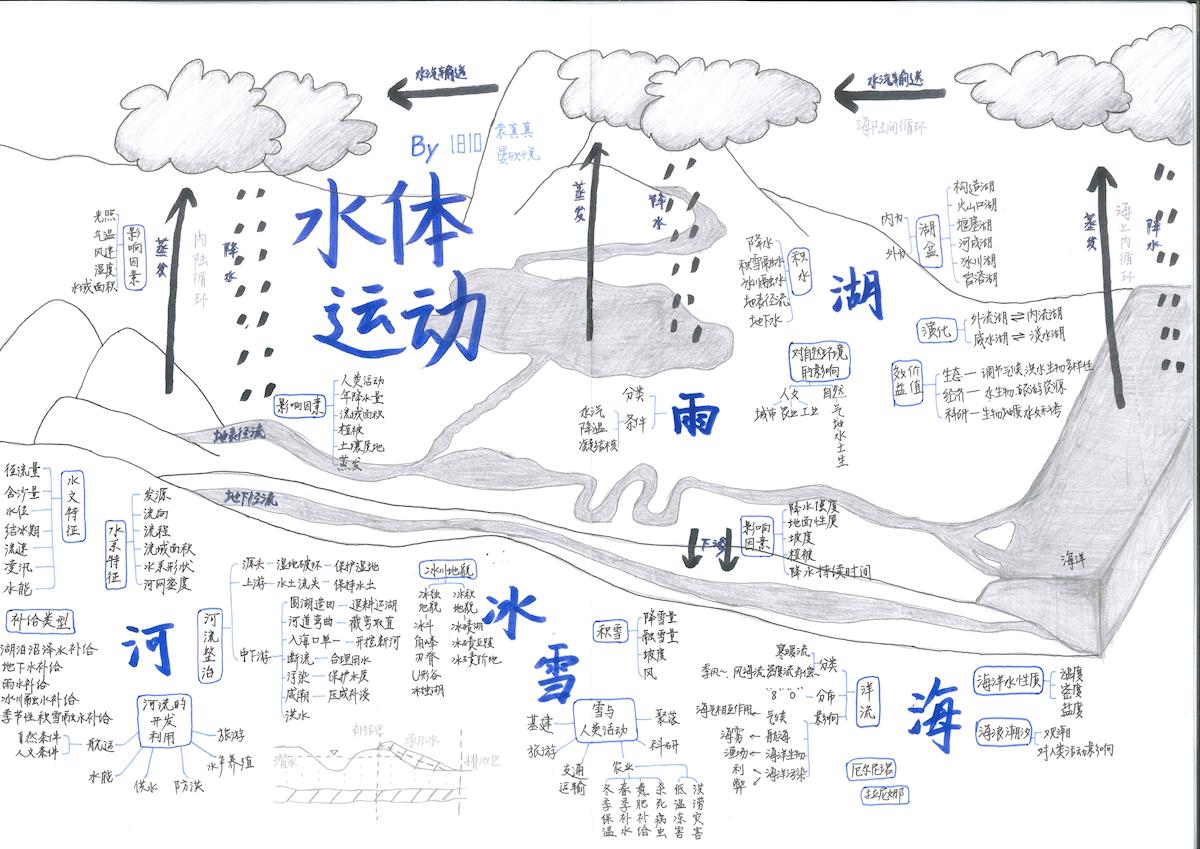 水汽输送
水汽输送
海陆间循环
By 1810 袁真真
水体
运动
蒸发
降水
内陆循环
影响因素
光照
气温
风速
湿度
水域面积
蒸发
降水
蒸发
降水
海上内循环
湖
积水
降水
积雪融水
冰川融水
地表径流
地下水
湖盆
内力
外力
构造湖
火山口湖
堰塞湖
河成湖
冰川湖
演化
外流湖⇌内流湖
咸水湖⇌淡水湖
效益价值
生态—调节气候 洪水 生物多样性
经济—水 生物 旅游资源
科研—生物 地质 水文 科考
对自然环境的影响
人文
城市 农业 工业
自然
气
地
水
土
生
雨
分类
条件
水汽
降温
凝结核
影响因素
人类活动
年降水量
流域面积
植被
土壤质地
蒸发
地表径流
地下径流
下渗
影响因素
降水强度
地面性质
坡度
植被
降水持续时间
海洋
水文特征
径流量
含沙量
水位
结冰期
流速
凌汛
水能
水系特征
发源
流向
流程
流域面积
水系形状
河网密度
补给类型
湖泊沼泽水补给
地下水补给
雨水补给
冰川融水补给
季节性积雪融水补给
河
河流整治
源头—湿地破坏—保护湿地
上游—水土流失—保持水土
中下游
围湖造田—退耕还湖
河道弯曲—裁弯取直
入海口单一—开挖新河
断流—合理用水
污染—保护水质
咸潮—压咸补淡
洪水
河流的开发利用
自然条件
人文条件
航运
水能
供水
防洪
水产养殖
旅游
潜水
补给区
承压水
排泄区
冰雪
冰川地貌
冰蚀地貌
冰斗
角峰
刃脊
U形谷
冰蚀湖
冰碛地貌
冰碛湖
冰碛丘陵
冰碛阶地
积雪
降雪量
融雪量
坡度
风
雪与人类活动
基建
旅游
交通运输
聚落
科研
农业
冬季保温
春季补水
煮肥补给
杀死病虫
低温冻害
洪涝灾害
海
洋流
分类
寒暖流
季风~ 风海流 密度流 补偿~
分布
"8" "0"
影响
气候
海气相互作用
航海
海雾
海洋生物
渔场
海洋污染
利
弊
海洋水性质
温度
密度
盐度
海浪潮汐
观潮
对人类活动影响
厄尔尼诺
拉尼娜